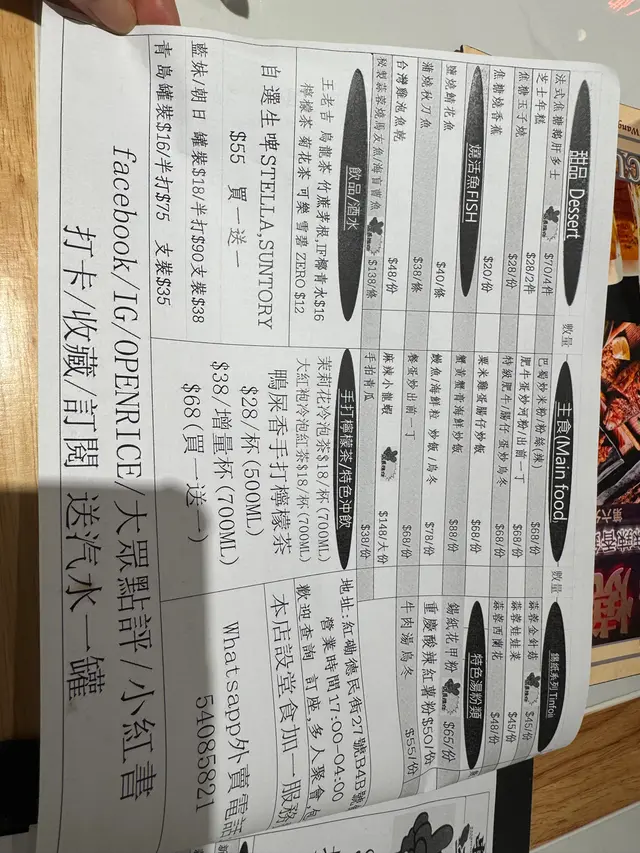 甜品 Dessert
法式焦糖鵝肝多士 $70/4件
芝士年糕 $28/2件
焦糖玉子燒 $28/份
焦糖燒香蕉 $20/份
燒活魚FISH
鹽燒鯖花魚 $40/條
蒲燒秋刀魚 $38/條
台灣雞泡魚乾 $48/份
秘製蒜蓉燒馬友魚/海盲曹魚 $138/條
飲品/酒水
王老吉 烏龍茶 竹蔗茅根,IF椰青水$16
檸檬茶 菊花茶 可樂 雪碧 ZERO $12
自選生啤STELLA,SUNTORY
$55 買一送一
藍妹/朝日 罐裝$18/半打$90支裝$38
青島罐裝$16/半打$75 支裝$35
數量
主食(Main food)
巴蜀炒米粉/粉絲(辣) $68/份
肥牛蛋炒河粉/出前一丁 $68/份
特級肥牛/腸仔蛋炒烏冬 $68/份
粟米雞蛋腸仔炒飯 $68/份
蟹黃蟹膏海鮮炒飯 $88/份
鰻魚/海鮮粒 炒飯/烏冬 $78/份
餐蛋炒出前一丁 $68/份
麻辣小龍蝦 $148/大份
手拍青瓜 $38/份
手打檸檬茶/特色沖飲
茉莉花冷泡茶$18/杯(700ML)
大紅袍冷泡紅茶$18/杯(700ML)
鴨屎香手打檸檬茶
$28/杯(500ML)
$38/增量杯(700ML)
$68(買一送一)
數量
錫紙系列Tinfoil
蒜蓉金針菇 $45/份
蒜蓉娃娃菜 $45/份
蒜蓉西蘭花 $48/份
特色湯粉類
錫紙花甲粉 $65/份
重慶酸辣紅薯粉$50/份
牛肉湯烏冬 $55/份
地址:紅磡德民街27號B4B號
營業時間17:00-04:00
歡迎查詢 訂座,多人聚會,
本店設堂食加一服務
Whatsapp外賣電
54085821
facebook/IG/OPENRICE/大眾點評/小紅書
打卡/收藏/訂閱 送汽水一罐